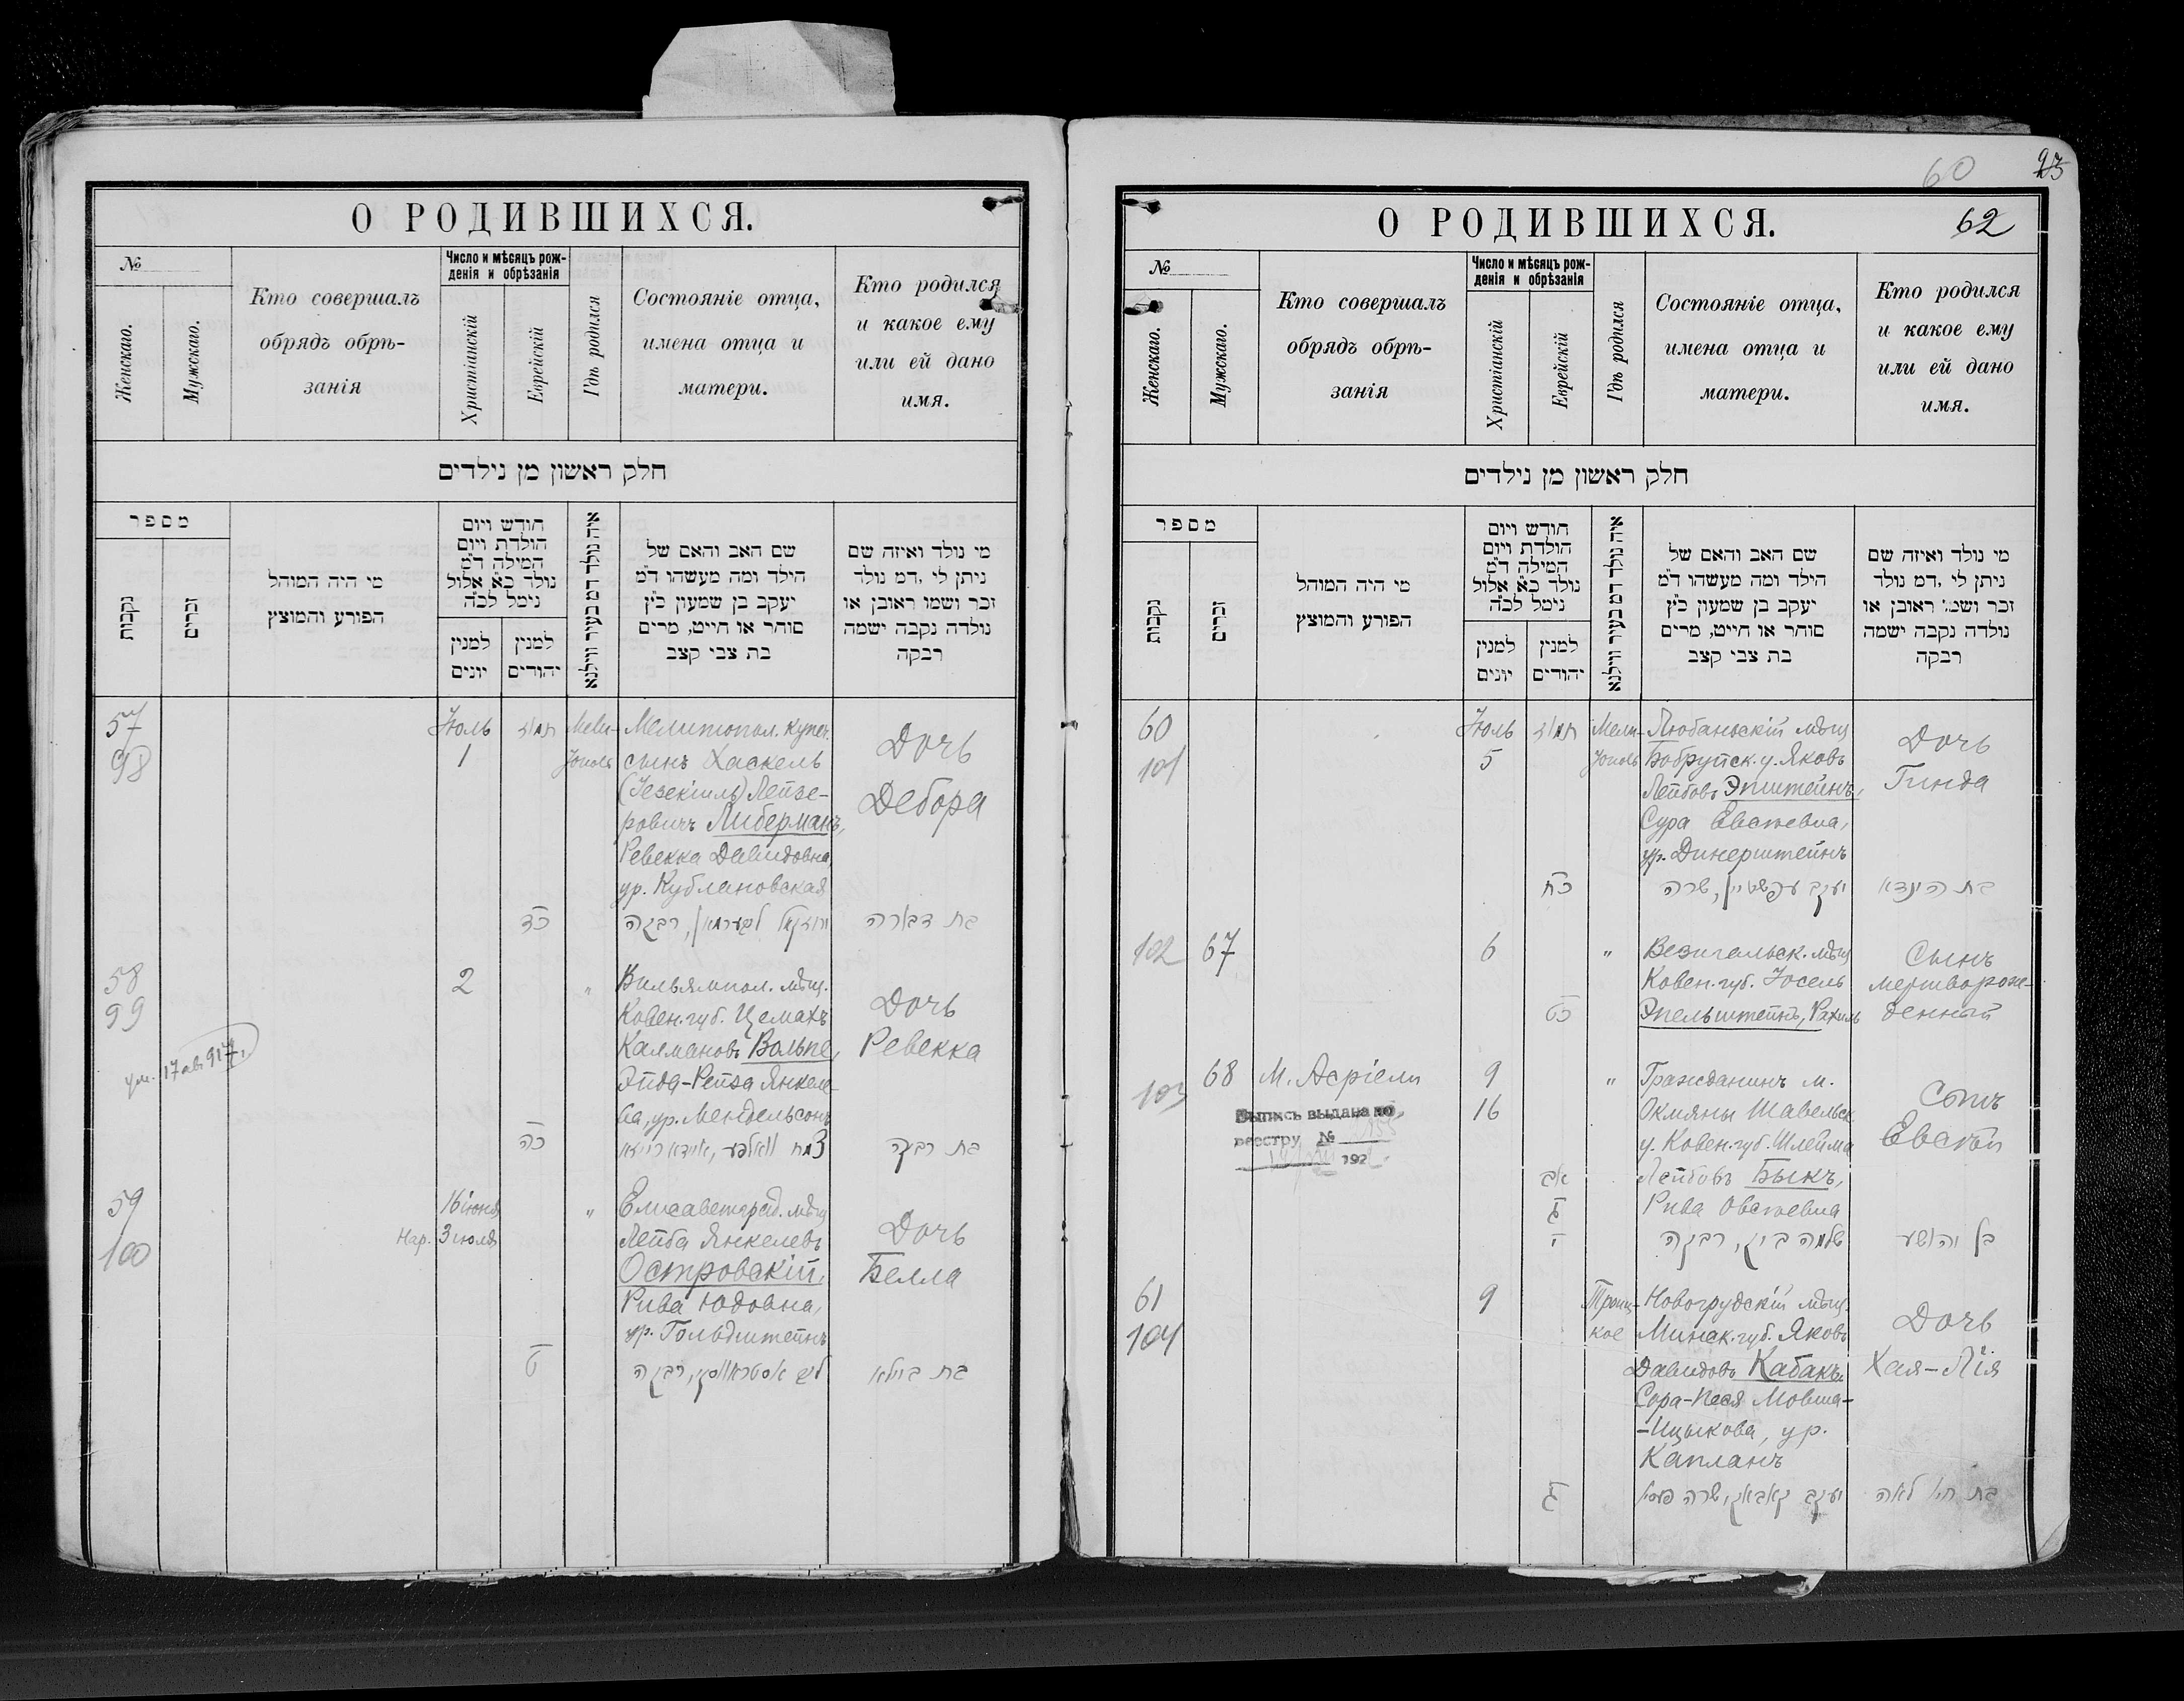 О РОДИВШИХСЯ.
№
Женскаго.
Мужскаго.
Кто совершалъ
обрядъ обрѣ-
занія
Число и мѣсяцъ рож-
денія и обрѣзанія
Христіанскій
Еврейскій
Гдѣ родился
Состояніе отца,
имена отца и
матери.
Кто родился
и какое ему
или ей дано
имя.
חלק ראשון מן נילדים
מספר
נקבות
זכרים
מי היה המוהל
הפורע והמוצץ
חודש ויום
הולדת ויום
המילה ד"מ
נולד כ"א אלול
נימל לכ"ה
למנין
יונים
למנין
יהודים
איה נולד דמ בעיר ווילנא
שם האב והאם של
הילד ומה מעשהו ד"מ
יעקב בן שמעון כ"ץ
סוהר או חייט, מרים
בת צבי קצב
מי נולד ואיזה שם
ניתן לי ,דמ נולד
זכר ושמו ראובן או
נולדה נקבה ישמה
רבקה
57
98
Іюль
1
תמוז
Мели-
тополь
Мелитопол. купеч.
сынъ Хаскель
(Іезекіиль) Лейзе-
ровичъ Либерманъ,
Ревекка Давидовна,
ур. Кублановская
Дочь
Дебора
כד
יחזקאל ליבערמאן, רבקה
בת דבורה
58
99
ум. 17 авг 917.
2
"
Вильямпол. мѣщ.
Ковен. губ. Цемахъ
Калмановъ Вольпе,
Эйда-Рейза Янкеле-
ва, ур. Мендельсонъ
Дочь
Ревекка
כה
צמח וואלפע, איידא רייזא
בת רבקה
59
100
16 іюня
Нар. 3 іюля
"
Елисаветград. мѣщ
Лейба Янкелевъ
Островскій,
Рива Юдовна,
ур. Гольдштейнъ
Дочь
Белла
ליב אסטראווסקי, רבקה
בת ביילא
60
23
О РОДИВШИХСЯ.
62
№
Женскаго.
Мужскаго.
Кто совершалъ
обрядъ обрѣ-
занія
Число и мѣсяцъ рож-
денія и обрѣзанія
Христіанскій
Еврейскій
Гдѣ родился
Состояніе отца,
имена отца и
матери.
Кто родился
и какое ему
или ей дано
имя.
חלק ראשון מן נילדים
מספר
נקבות
זכרים
מי היה המוהל
הפורע והמוצץ
חודש ויום
הולדת ויום
המילה ד"מ
נולד כ"א אלול
נימל לכ"ה
למנין
יונים
למנין
יהודים
איה נולד דמ בעיר ווילנא
שם האב והאם של
הילד ומה מעשהו ד"מ
יעקב בן שמעון כ"ץ
סוהר או חייט, מרים
בת צבי קצב
מי נולד ואיזה שם
ניתן לי ,דמ נולד
זכר ושמו ראובן או
נולדה נקבה ישמה
רבקה
60
101
Іюль
5
תמוז
Мели-
тополь
Любаньскій мѣщ
Бобруйск. у. Яковъ
Лейбовъ Эпштейнъ,
Сура Евсѣевна,
ур. Динерштейнъ
Дочь
Гинда
כח
יעקב עפשטיין, שרה
בת הינדא
102
67
6
"
Везигальск. мѣщ
Ковен. губ. Іосель
Эпельштейнъ, Рахиль
Сынъ
мертворож-
денный
כט
103
68
М. Асріели
9
16
"
Выпись выдана по
реестру №
192
Гражданинъ м.
Окмяны Шавельск.
у. Ковен. губ. Шлейма
Лейбовъ Быкъ,
Рива Овсѣевна
Сынъ
Евсѣй
אב
ג
י
שלמה ביק, רבקה
בן יהושע
61
104
9
Троиц-
кое
Новогрудскій мѣщ.
Минск. губ. Яковъ
Давидовъ Кабакъ,
Сора-Песя Мовша-
-Ицыкова, ур.
Капланъ
Дочь
Хая-Лія
ג
יעקב קאבאק, שרה פעסי
בת חיה לאה